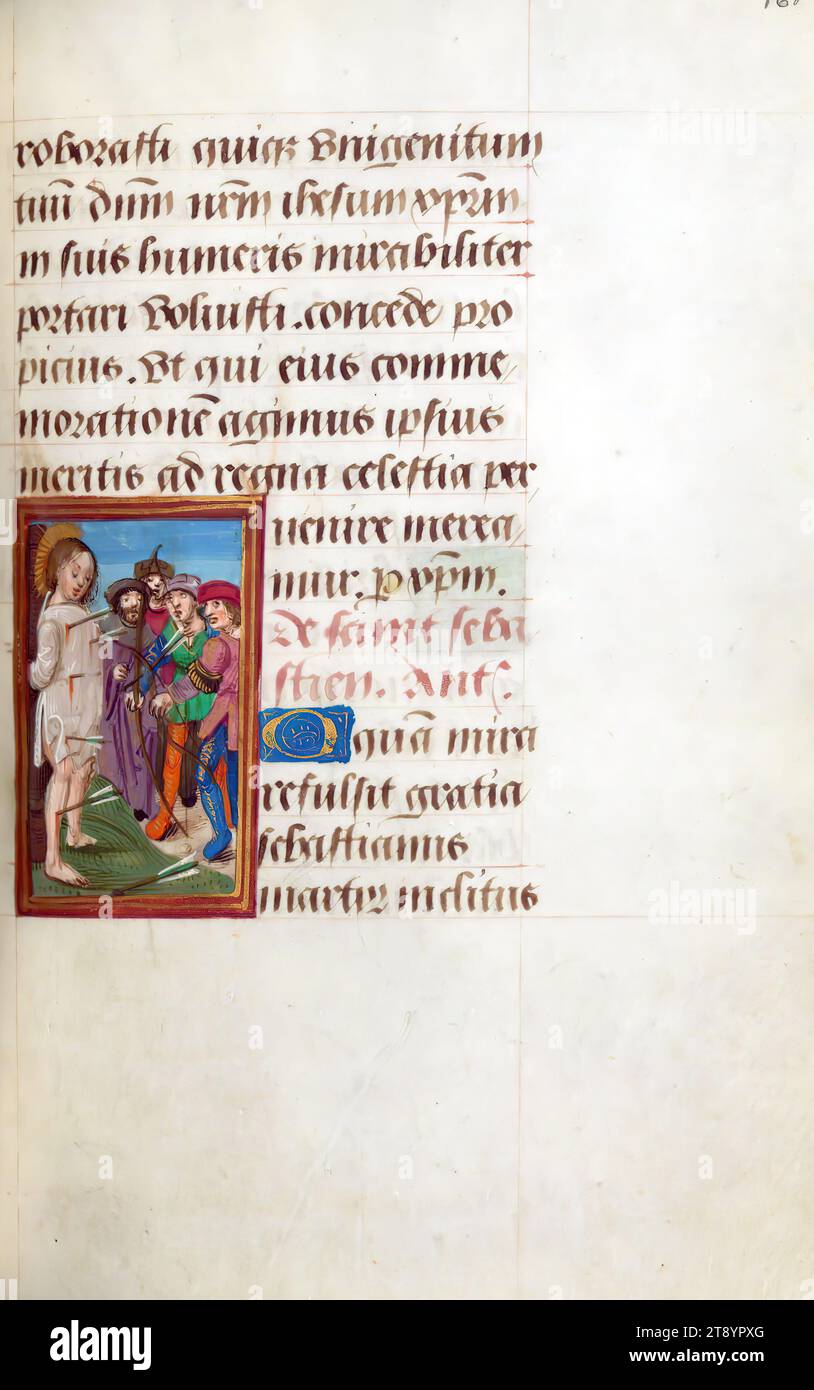 roborasti quiqz Vnigenitum
tuū dūm nr̄m ihesum xp̄m
in suis humeris mirabiliter
portari Voluisti . concede pro
picius . Vt qui eius comme/
morationē agimus ipsius
meritis ad regna celestia per
uenire merea/
mur . p xp̄m .
De saint seba
stien . Ant .
O quā mira
refulsit gratia
sebastianus
martir inclitus
alamy
Image ID: 2T8YPXG
www.alamy.com